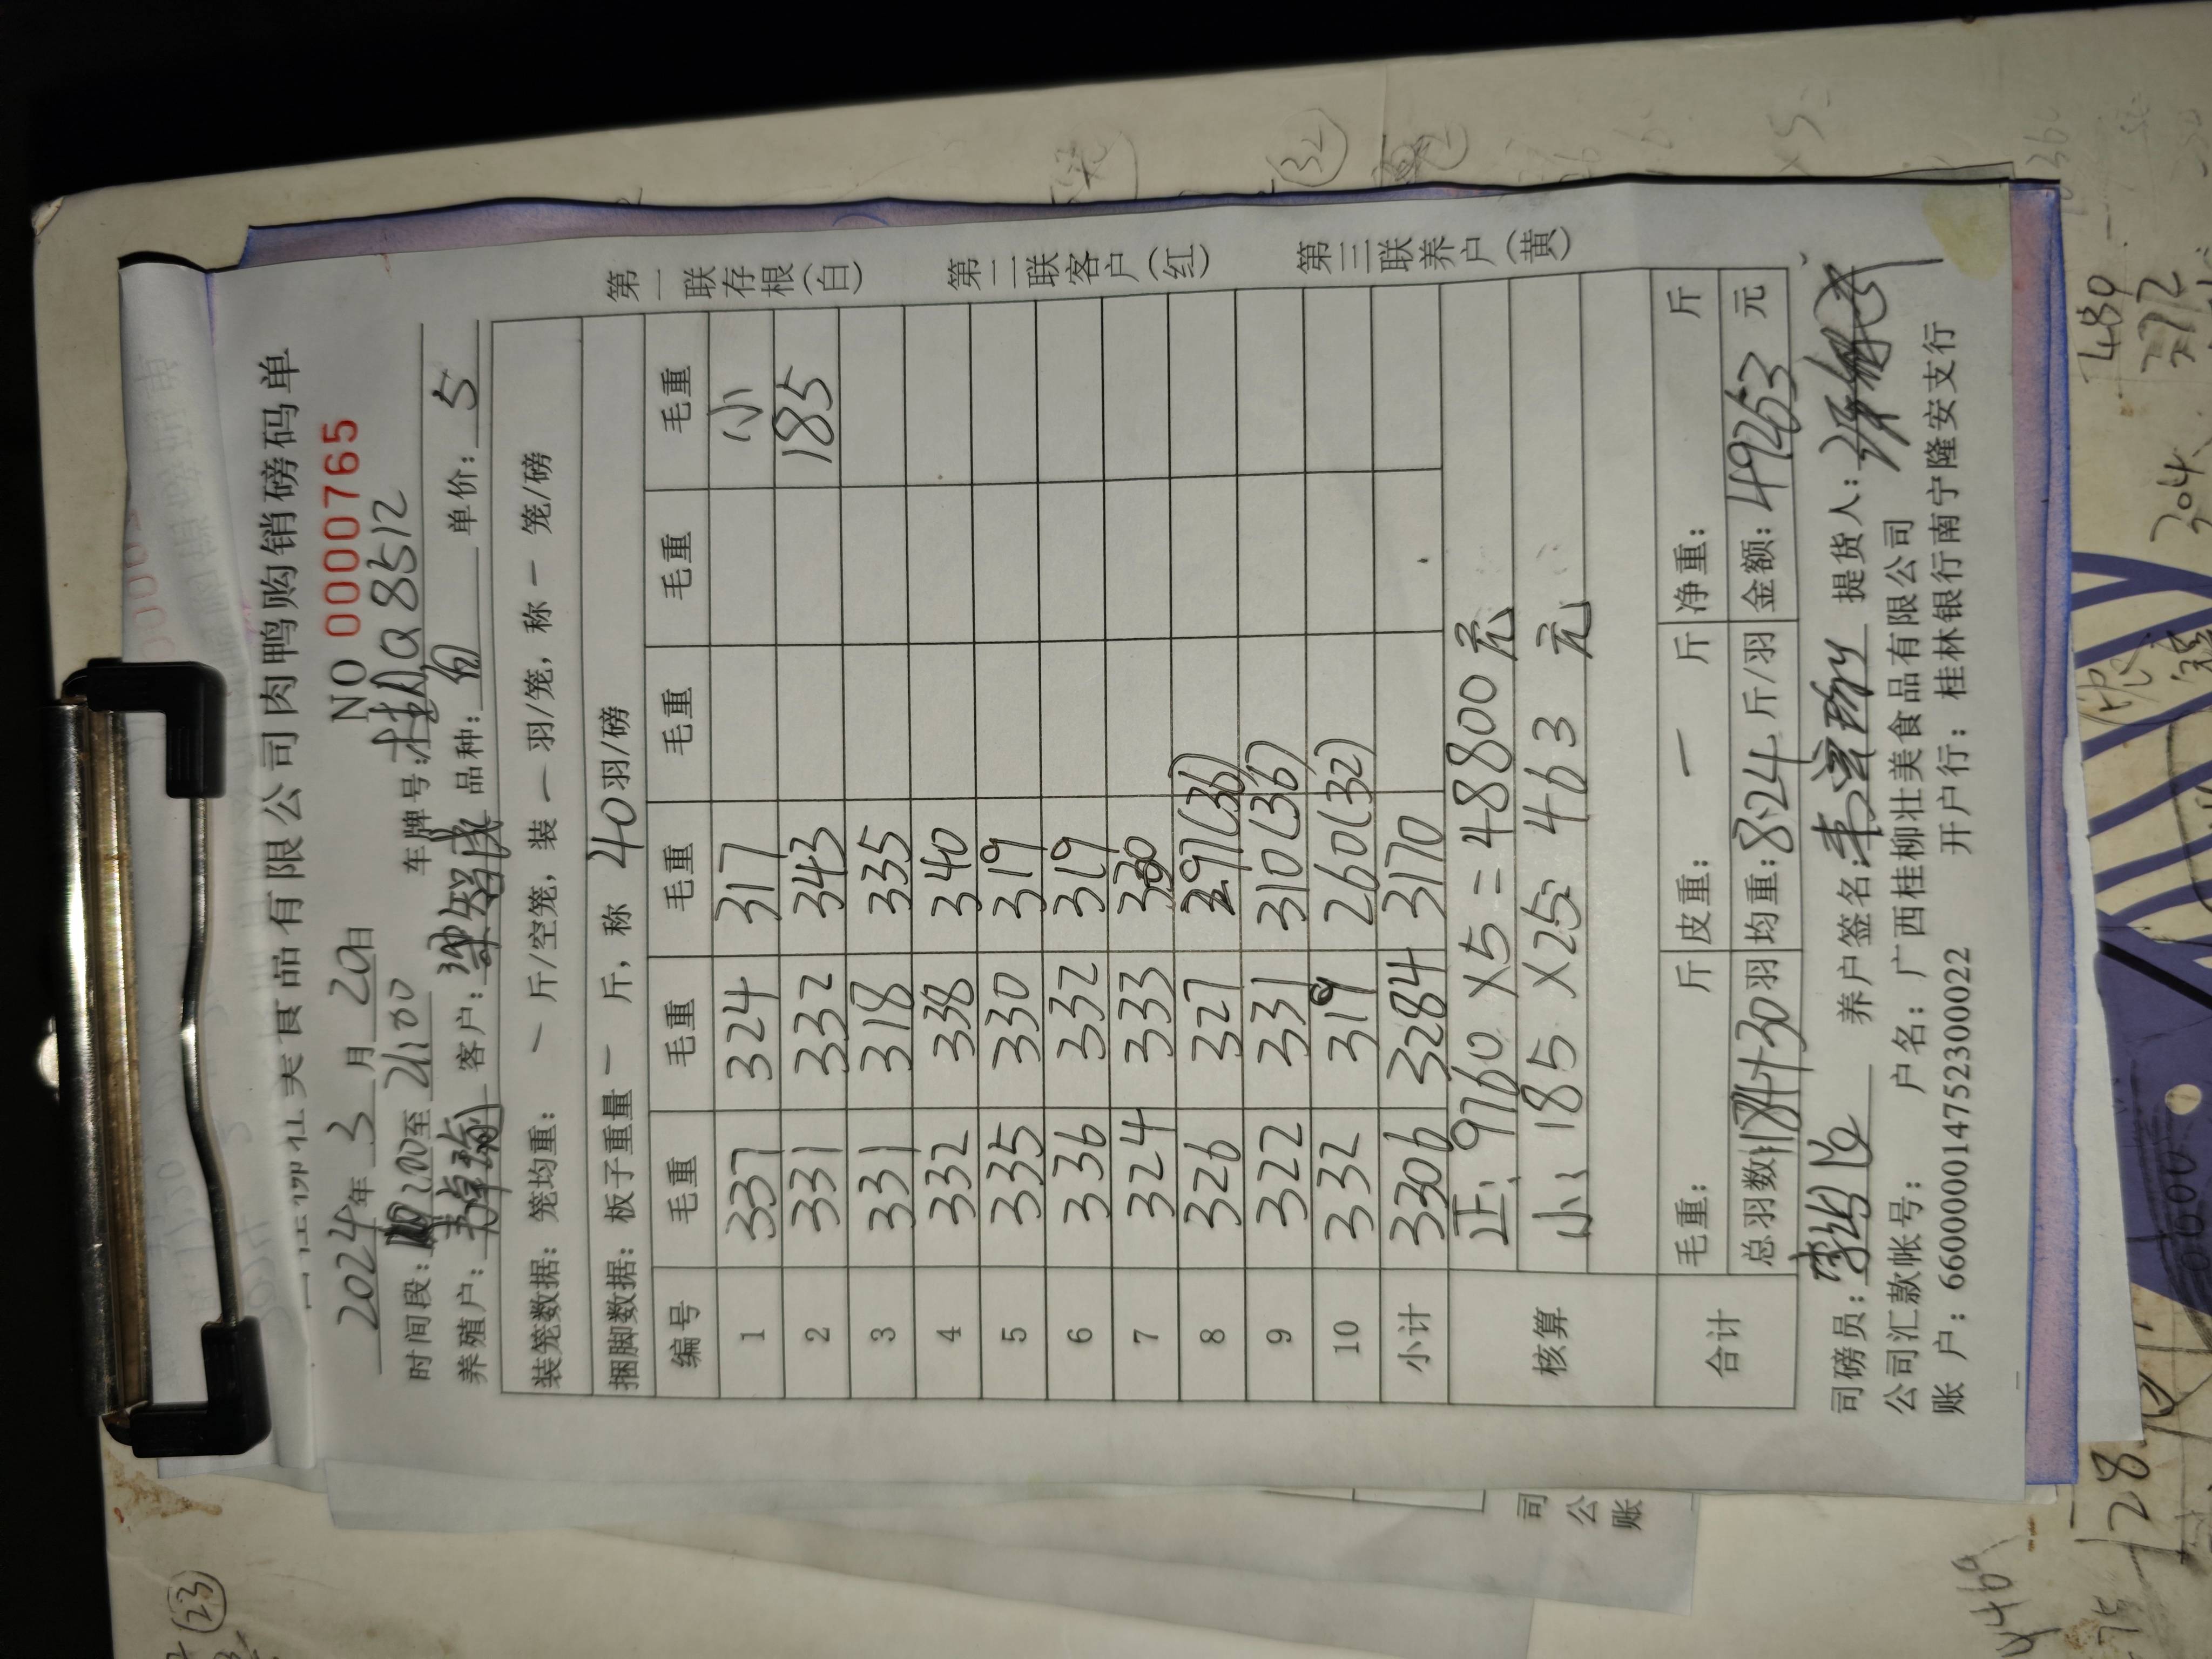 美食品有限公司肉鸭购销磅码单
NO 0000765
2024年3月29日 车牌号:桂AQ8512
时间段: 至21:00
养殖户: 客户: 品种: 单价:5
装笼数据:笼均重: 一 斤/空笼,装 一 羽/笼,称 一 笼/磅
捆脚数据:板子重量 一 斤,称 40羽/磅
编号 毛重 毛重 毛重 毛重 毛重 毛重
1 337 324 317 小
2 331 332 343 185
3 331 318 335
4 332 338 340
5 335 330 319
6 336 332 319
7 324 333
8 326 327 297(36)
9 322 331 310(36)
10 332 319 260(32)
小计 3306 3284 3170
核算 正: 9760×5=48800元
小: 185×25 463元
合计 毛重: 斤 皮重: 一 斤 净重: 斤
总羽数:1184+30羽 均重:8.24斤/羽 金额:49263元
司磅员: 养户签名: 提货人:
公司汇款帐号: 户名:广西桂柳壮美食品有限公司
账户:660000014752300022 开户行:桂林银行南宁隆安支行
第一联存根(白) 第二联客户(红) 第三联养户(黄)
司
公
账
23
32
304